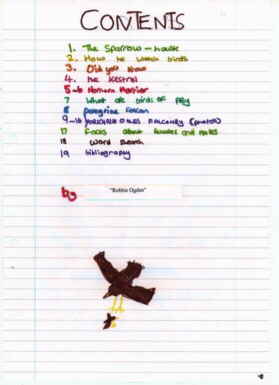 CONTENTS
1. The Sparrow - hawk
2. How to watch birds
3. Did you know
4. The Kestrel
5-6 Harrier
7 What are birds of Prey
8 peregrine falcon
9-16 FALCONRY (photos)
17 Facts about females and males
18 word search
19 bibliography
by "Robbie Ogden"